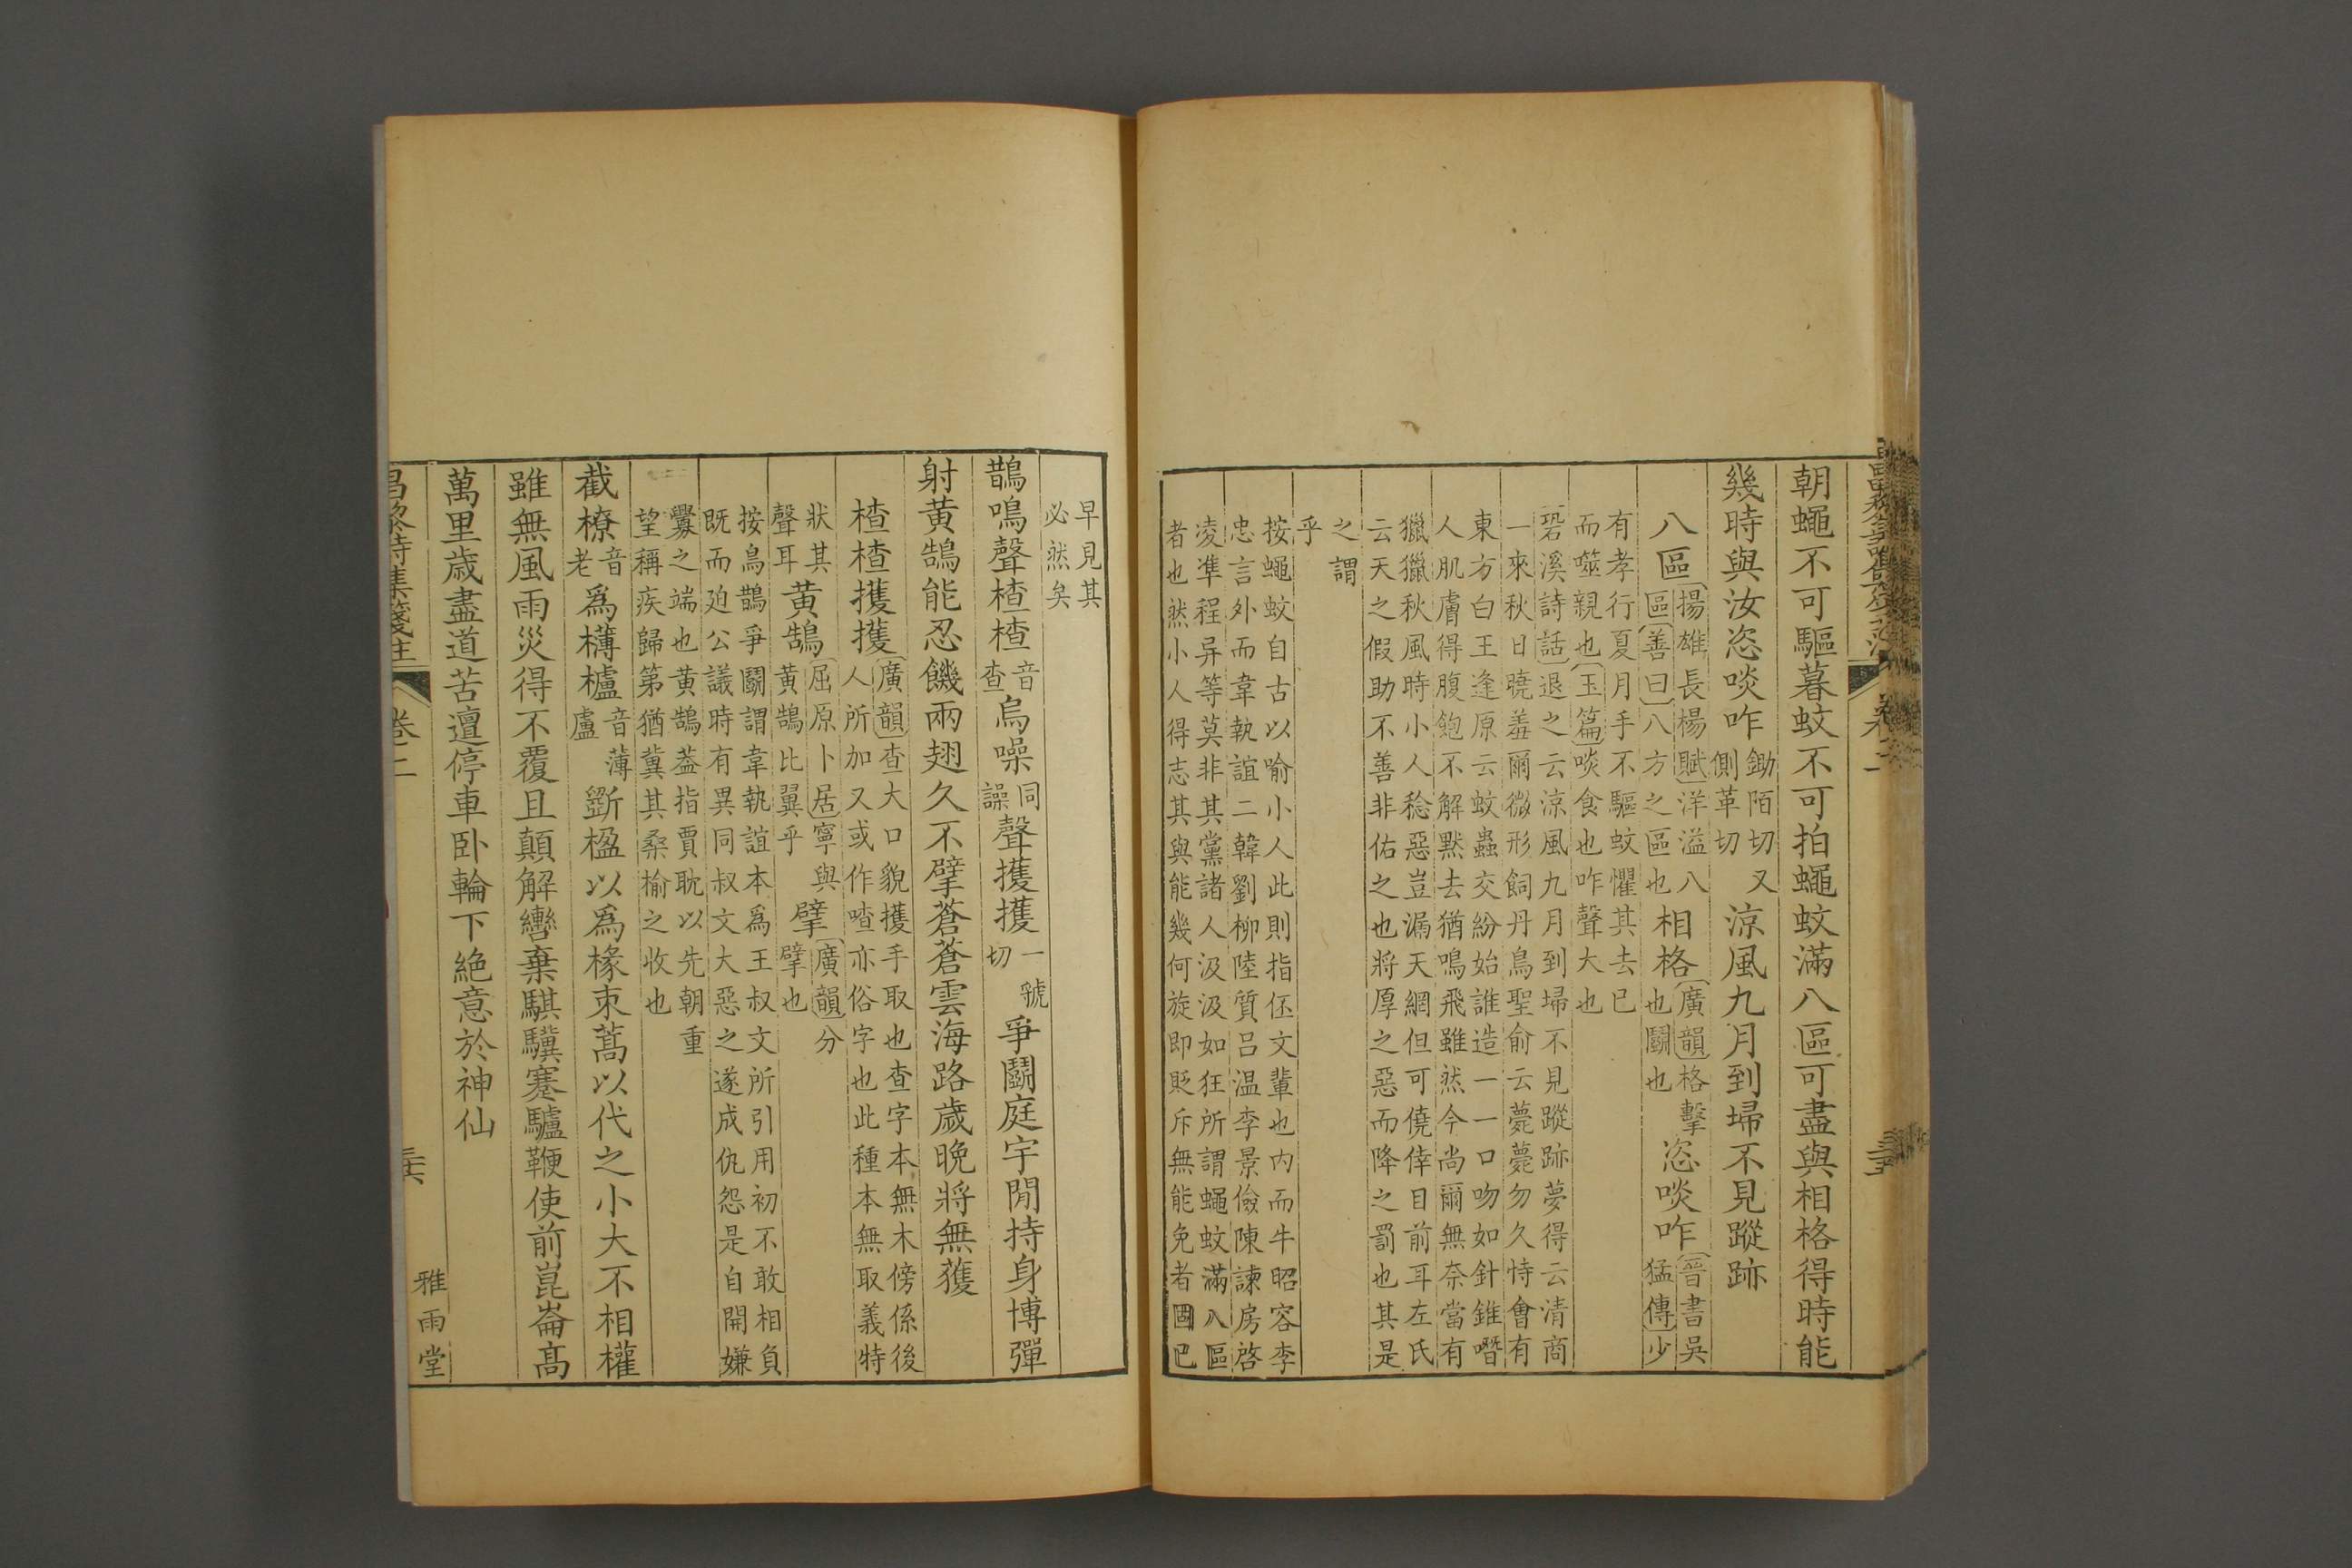 朝蠅不可驅暮蚊不可拍蠅蚊滿八區可盡與相格得時能
幾時與汝恣啖咋
鋤陌切又
側革切
涼風九月到埽不見蹤跡
八區
〔揚雄長楊賦〕洋溢八
區〔善曰〕八方之區也
相格
〔廣韻〕格擊
也鬬也
恣啖咋
〔晉書吳
猛傳〕少
有孝行夏月手不驅蚊懼其去已
而噬親也〔玉篇〕啖食也咋聲大也
〔碧溪詩話〕退之云涼風九月到埽不見蹤跡夢得云清商
一來秋日曉羞爾微形飼丹鳥聖俞云薨薨勿久恃會有
東方白王逢原云蚊蟲交紛始誰造一一口吻如針錐噆
人肌膚得腹飽不解默去猶鳴飛雖然今尚爾無奈當有
獵獵秋風時小人稔惡豈漏天網但可僥倖目前耳左氏
云天之假助不善非佑之也將厚之惡而降之罰也其是
之謂
乎
按蠅蚊自古以喻小人此則指伾文輩也內而牛昭容李
忠言外而韋執誼二韓劉柳陸質呂温李景儉陳諫房啓
凌準程异等莫非其黨諸人汲汲如狂所謂蠅蚊滿八區
者也然小人得志其與能幾何旋即貶斥無能免者國已
早見其
必然矣
鵲鳴聲楂楂
音
查
烏噪
同
譟
聲擭擭
一虢
切
爭鬬庭宇閒持身博彈
射黃鵠能忍饑兩翅久不擘蒼蒼雲海路歲晚將無獲
楂楂擭擭
〔廣韻〕查大口貌擭手取也查字本無木傍係後
人所加又或作喳亦俗字也此種本無取義特
狀其
聲耳
黃鵠
〔屈原卜居〕寧與
黃鵠比翼乎
擘
〔廣韻〕分
擘也
按烏鵲爭鬬謂韋執誼本爲王叔文所引用初不敢相負
既而迫公議時有異同叔文大惡之遂成仇怨是自開嫌
釁之端也黃鵠葢指賈耽以先朝重
望稱疾歸第猶冀其桑榆之收也
截橑
音
老
爲欂櫨
音薄
盧
斵楹以爲椽朿蒿以代之小大不相權
雖無風雨災得不覆且顛解轡棄騏驥蹇驢鞭使前崑崙高
萬里歲盡道苦邅停車卧輪下絕意於神仙
昌黎詩集箋注
卷二
雅雨堂